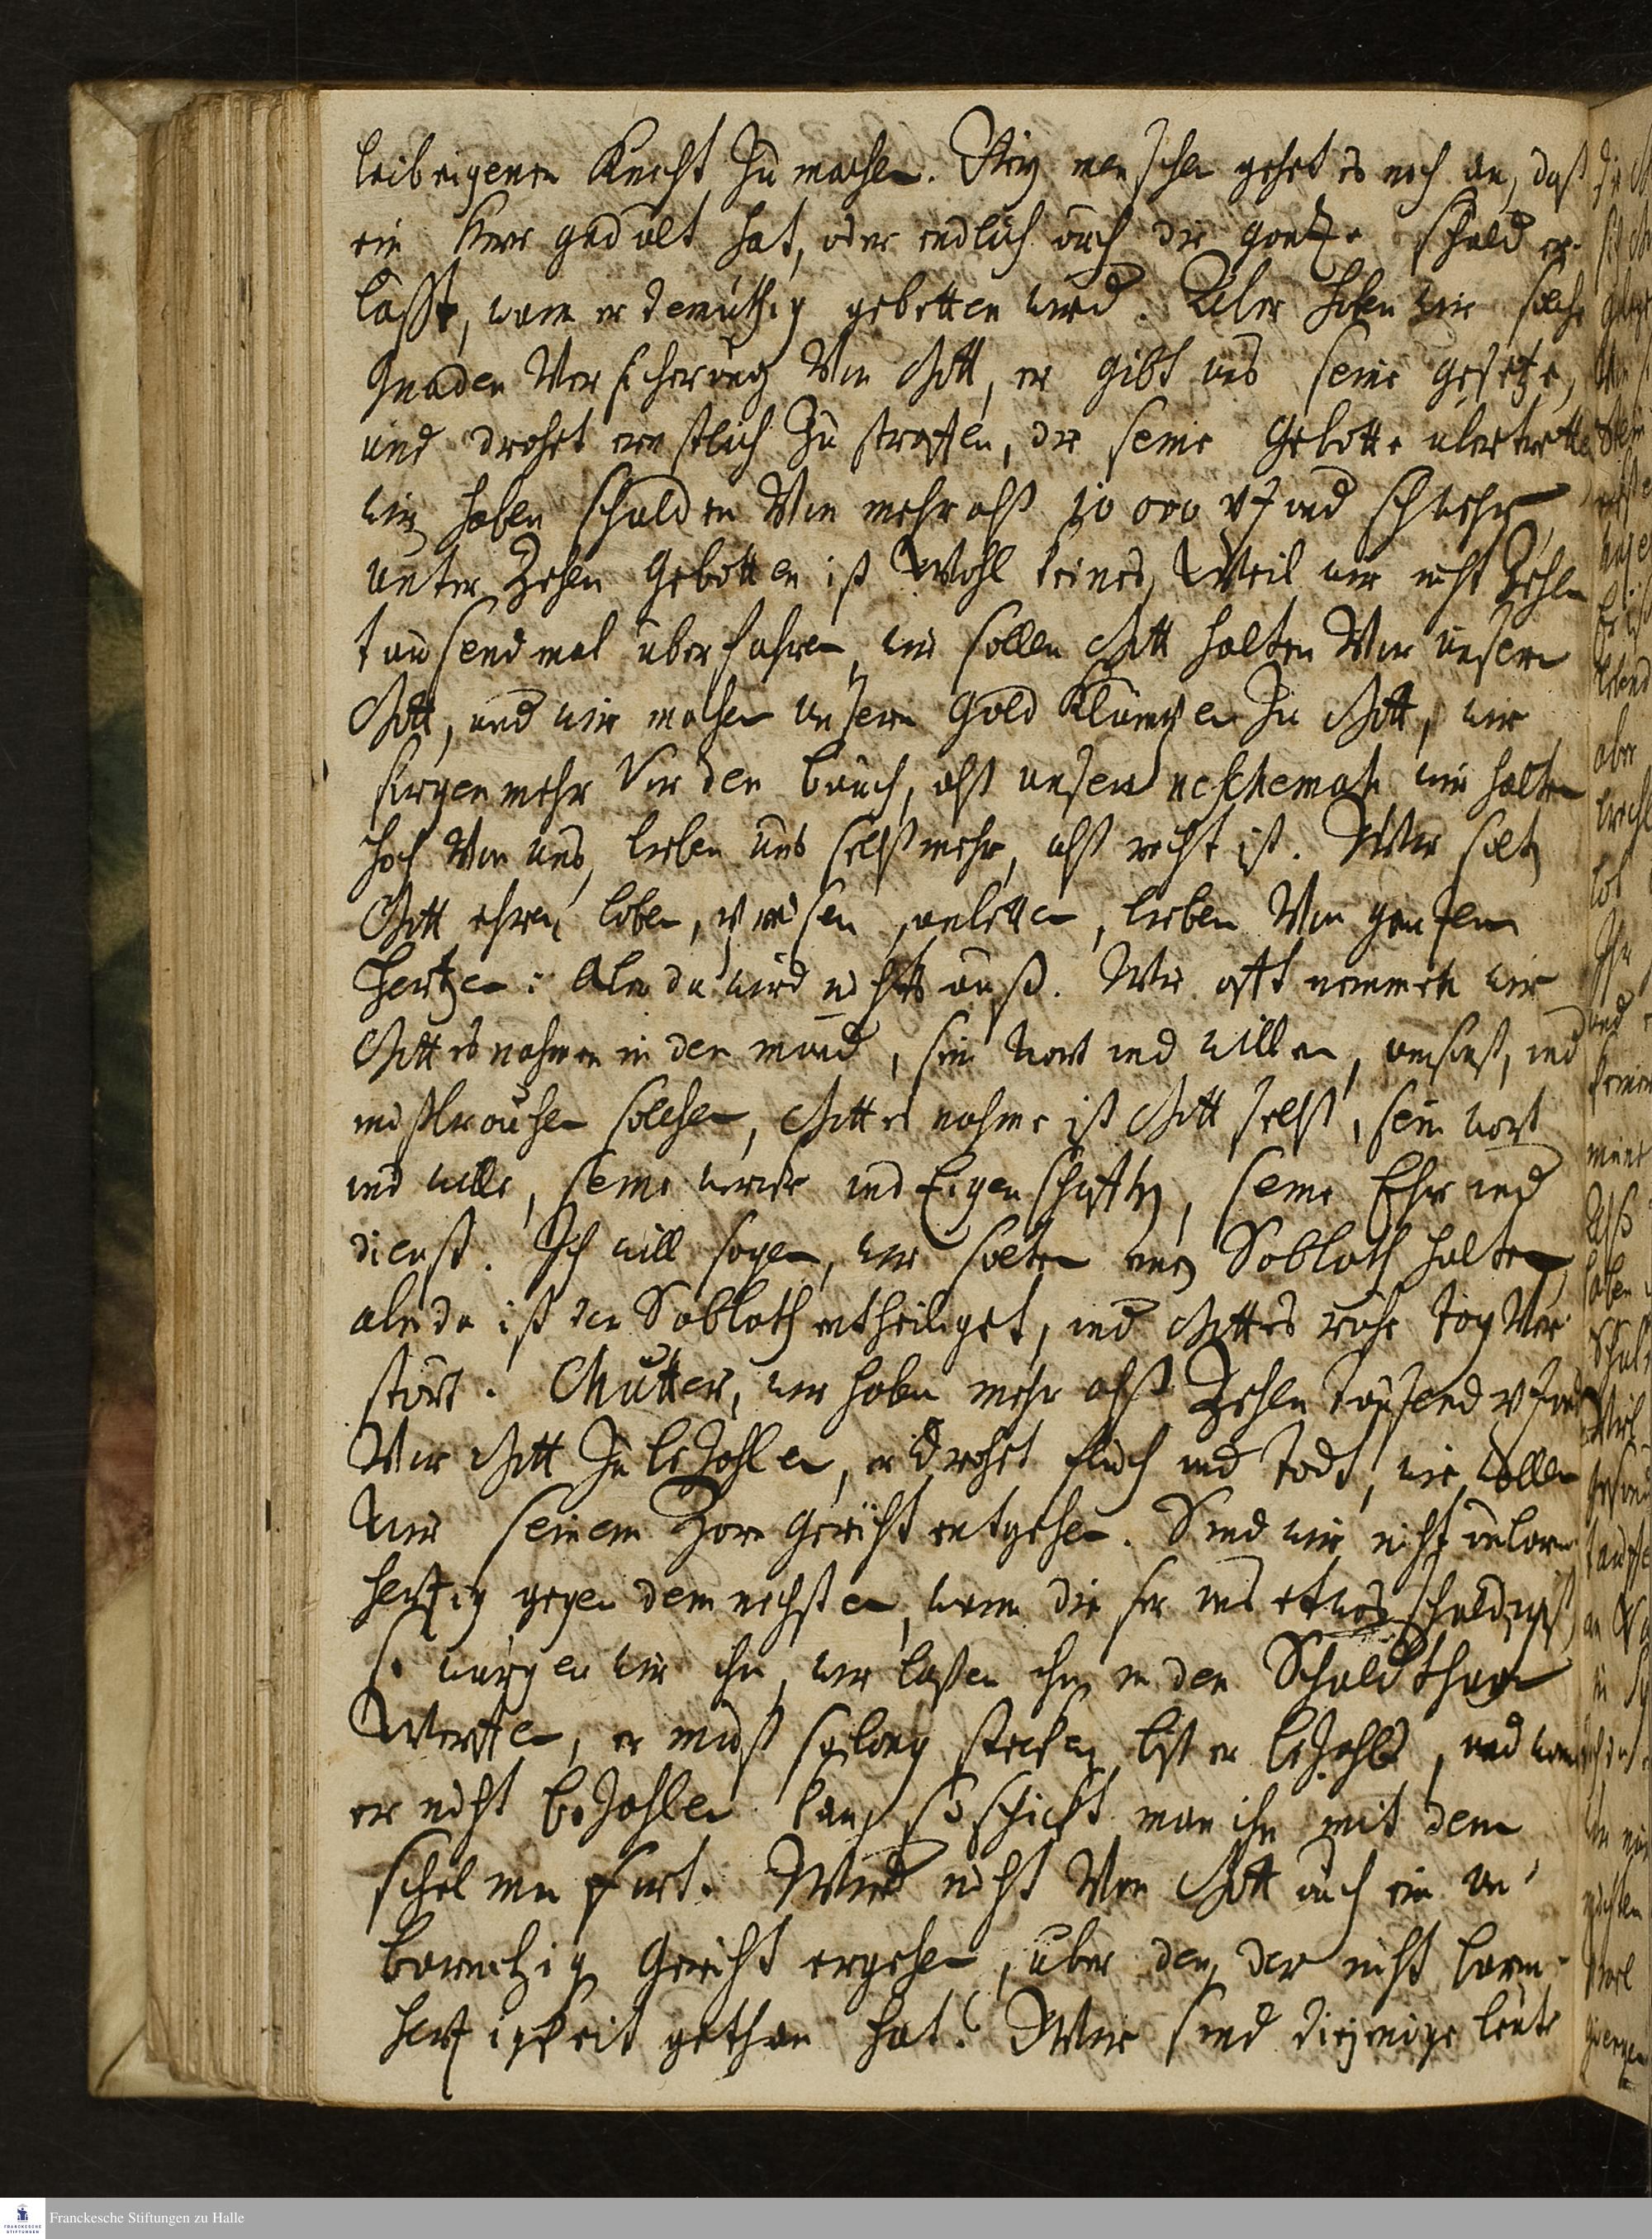 leibeigenen Knecht zu machen. Bey menschen gehet es noch an, daß
ein Herr gedult hat, oder endlich auch die gantze schuld er-
lasst, wann er demüthig gebetten wird. Aber haben wir solche
Gnaden Versicherung Von Gott, er gibt uns seine gesetze,
und drohet ernstlich zu straffen, die seine Gebotte ubertretten
wir haben schulden Von mehr alß 10 000 pfund schwehr,
unter Zehen Gebotten ist Wohl keines, Weil wir nicht Zehen
tausend mal uberfahren, wir sollen Gott halten Vor unsern
Gott, und wir machen unsern Gold Klumpen zu Gott, wir
sorgen mehr Vor den bauch, alß unsere neschemah wir halten
hoch Von uns, lieben uns selbst mehr, alß recht ist. Wir solten
Gott ehren, loben, preisen, anbetten, lieben Von gantzem
Hertzen: Aber da wird nichts auß. Wie offt nemmen wir
Gottes nahmen in den mund, sein wort und willen, umsonst, und
mißbrauchen solchen, Gottes nahme ist Gott selbst, sein wort
und wille, seine wercke und Eigenschafften, seine Ehr und
dienst. Ich will sagen, wir solten einen Sabbath halten,
aber da ist der Sabbath entheiliget, und Gottes ruhe tag Ver-
stört. Mutter, wir haben mehr alß Zehen tausend pfund
Vor Gott zu bezahlen, er drohet fluch und todt, wie wollen
Wir seinem Zorn Gericht entgehen. Sind wir nicht unbarm-
hertzig gegen dem nechsten, wann dieser uns etwas schuldig ist,
so würgen wir ihn, wir laßen ihn in den Schuldthurn
Werffen, er muß so lang stecken, biß er bezahlt, und wann
er nicht bezahlen kan, so schickt man ihn mit dem
schelmen furt. Wird nicht Von Gott auch ein un-
barmhertzig Gericht ergehen, über den, der nicht barm-
hertzigkeit gethan hat? Wir sind diejenige leute
Franckesche Stiftungen zu Halle